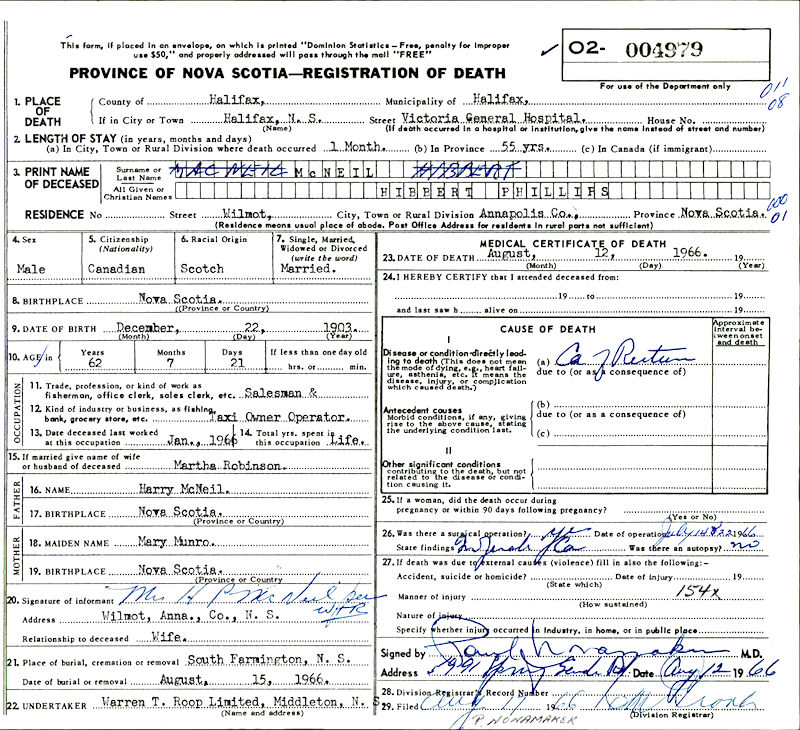 This form, if placed in an envelope, on which is printed "Dominion Statistics – Free, penalty for improper
use $50," and properly addressed will pass through the mail "FREE"
✓ 02- 004979
PROVINCE OF NOVA SCOTIA—REGISTRATION OF DEATH
For use of the Department only
011
08
1. PLACE OF DEATH
County of Halifax, Municipality of Halifax,
If in City or Town Halifax, N. S. Street Victoria General Hospital. House No.
(Name) (If death occurred in a hospital or institution, give the name instead of street and number)
2. LENGTH OF STAY (in years, months and days)
(a) In City, Town or Rural Division where death occurred 1 Month. (b) In Province 55 yrs. (c) In Canada (if immigrant)
3. PRINT NAME OF DECEASED
Surname or Last Name MAC NEIL McNEIL HIBBERT
All Given or Christian Names HIBBERT PHILLIPS
RESIDENCE No Street Wilmot, City, Town or Rural Division Annapolis Co., Province Nova Scotia.
100
01
(Residence means usual place of abode. Post Office Address for residents in rural parts not sufficient)
4. Sex
Male
5. Citizenship
(Nationality)
Canadian
6. Racial Origin
Scotch
7. Single, Married, Widowed or Divorced
(write the word)
Married.
8. BIRTHPLACE Nova Scotia.
(Province or Country)
9. DATE OF BIRTH December, 22, 1903.
(Month) (Day) (Year)
10. AGE in
Years 62
Months 7
Days 21
If less than one day old
hrs. or min.
OCCUPATION
11. Trade, profession, or kind of work as
fisherman, office clerk, sales clerk, etc. Salesman &
12. Kind of industry or business, as fishing,
bank, grocery store, etc. Taxi Owner Operator.
13. Date deceased last worked
at this occupation Jan., 1966
14. Total yrs. spent in
this occupation Life.
15. If married give name of wife
or husband of deceased Martha Robinson.
FATHER
16. NAME Harry McNeil.
17. BIRTHPLACE Nova Scotia.
(Province or Country)
MOTHER
18. MAIDEN NAME Mary Munro.
19. BIRTHPLACE Nova Scotia.
(Province or Country)
20. Signature of informant Mrs H P McNeil
Address Wilmot, Anna., Co., N. S.
Relationship to deceased Wife.
21. Place of burial, cremation or removal South Farmington, N. S.
Date of burial or removal August, 15, 1966.
22. UNDERTAKER Warren T. Roop Limited, Middleton, N. S
(Name and address)
MEDICAL CERTIFICATE OF DEATH
23. DATE OF DEATH August, 12, 1966. 19
(Month) (Day) (Year)
24. I HEREBY CERTIFY that I attended deceased from:
19 to 19
and last saw h alive on 19
CAUSE OF DEATH
Approximate interval between onset and death
I
Disease or condition directly leading to death (This does not mean the mode of dying, e.g., heart failure, asthenia, etc. It means the disease, injury, or complication which caused death.)
(a) Ca of Rectum
due to (or as a consequence of)
Antecedent causes
Morbid conditions, if any, giving rise to the above cause, stating the underlying condition last.
(b)
due to (or as a consequence of)
(c)
II
Other significant conditions
contributing to the death, but not related to the disease or condition causing it.
25. If a woman, did the death occur during
pregnancy or within 90 days following pregnancy?
(Yes or No)
26. Was there a surgical operation? yes Date of operation July 14 & 22 1966
State findings Was there an autopsy? no
27. If death was due to external causes (violence) fill in also the following:-
Accident, suicide or homicide? Date of injury 19
(State which)
Manner of injury 154x
(How sustained)
Nature of injury
Specify whether injury occurred in industry, in home, or in public place
Signed by M.D.
Address Date Aug 12 1966
28. Division Registrar's Record Number
29. Filed Aug 17 1966
P. NONAMAKER
(Division Registrar)